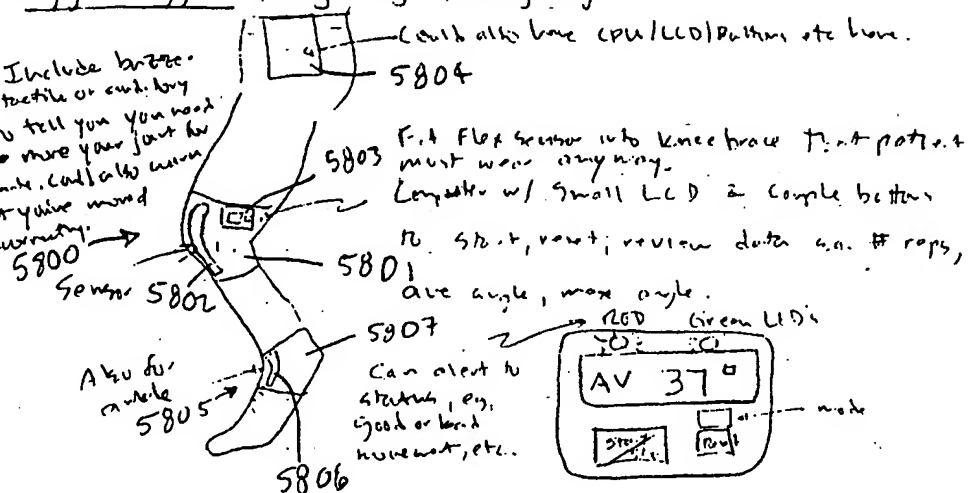 Could also have CPU/LCD/Buttons etc here.
5804
Include buzzer
tactile or auditory
to tell you you need
to move your joint for
Could also warn
you've moved
5800
Sensor 5802
5803 Fit Flex sensor into knee brace that patient
must wear anyway.
Computer w/ Small LCD & couple buttons
to start, reset, review data # reps,
5801
ave angle, max angle.
RED Green LED's
5807
Also for
ankle
5805
Can alert to
status, eg,
good or bad
movement, etc..
AV 37°
mode
5806